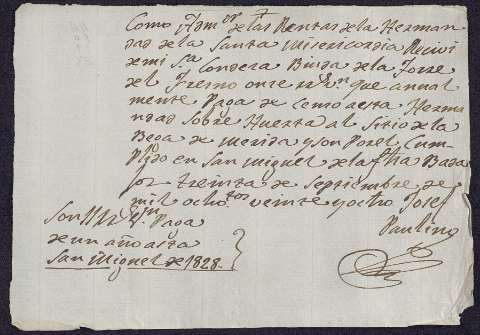 Como Adm.or de las Rentas de la Herman
dad de la Santa Misericordia Reciví
de mi S.a Condesa Biuda de la Torre
del Fresno once rs vn que anual
mente Paga de Censo a esta Herman
dad sobre Huerta al Sitio de la
Bega de Merida y son Por el Cum
plido en San Miguel de la fha Bada
joz treinta de Septiembre de
mil ocho.tos veinte y ocho Josef
Paulino
Son 11 rs vn Paga
de un año asta
San Miguel de 1828.